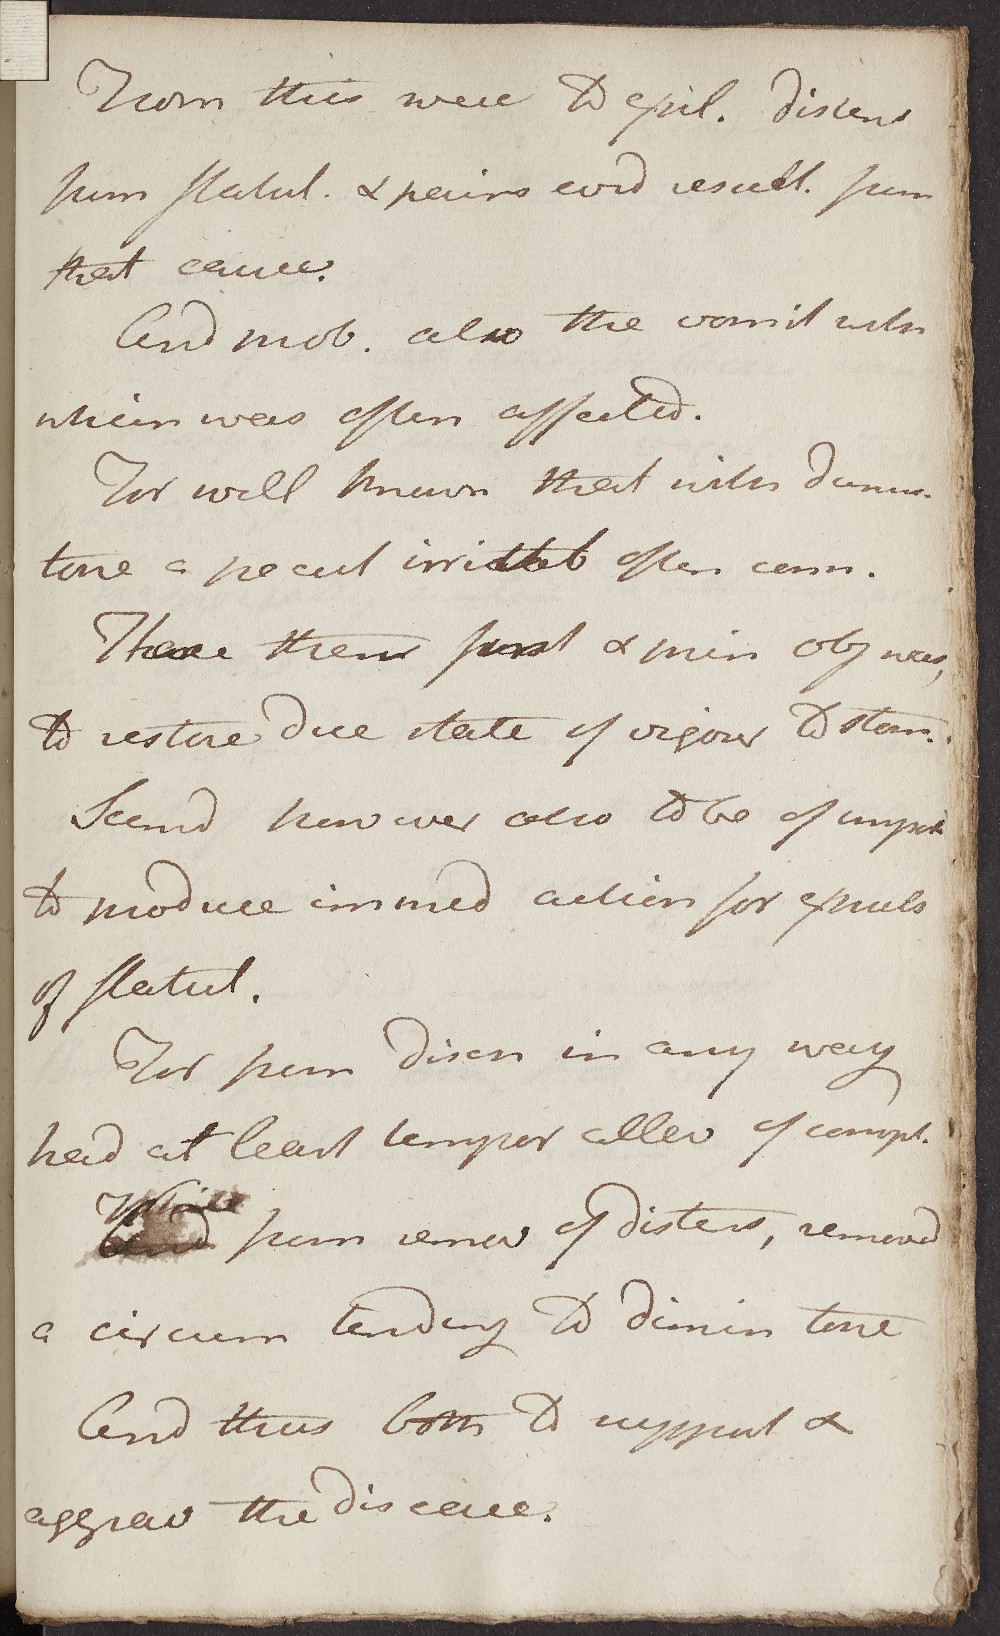 From this were to expl. disten
from flatul. & pains evid result. from
that cause.
And prob. also the vomit with
which was often affected.
For well known that with dimin.
tone a pecul irritab often conn.
There then first & prin obj was,
to restore due state of vigour to stom.
Seemd however also to be of import
to produce immed action for expuls
of flatul.
For from disch in any way
had at least tempor allev of compt.
While from remov of distens, removed
a circum tending to dimin tone
And thus both to support &
aggrav the disease.